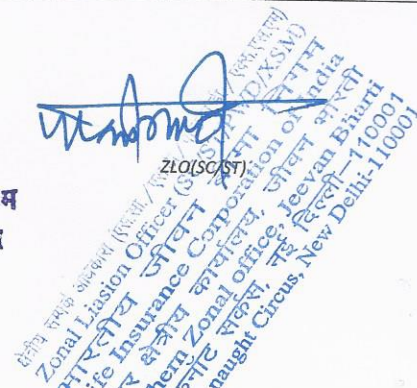 ZLO(SC/ST)
क्षेत्रीय सम्पर्क अधिकारी
Zonal Liasion Officer (SC/ST/PWD/XSM)
भारतीय जीवन बीमा निगम
Life Insurance Corporation of India
क्षेत्रीय कार्यालय, जीवन भारती
Zonal office, Jeevan Bharti
सर्कस, नई दिल्ली-110001
Circus, New Delhi-110001